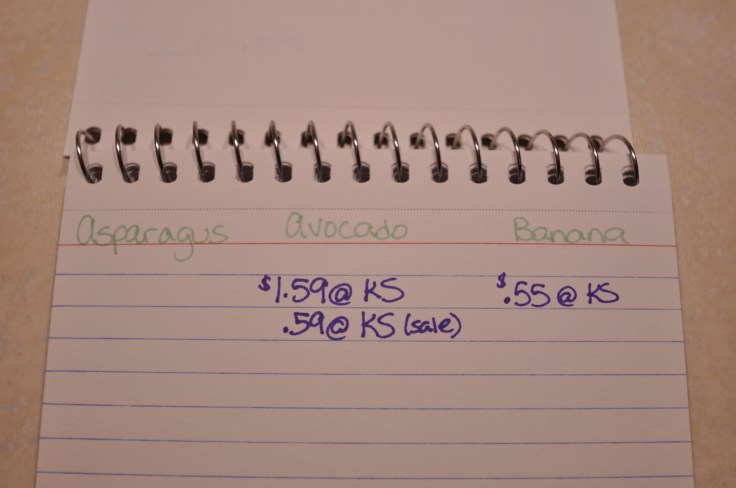 Asparagus Avocado Banana
$1.59@ KS $.55@ KS
.59@ KS (sale)